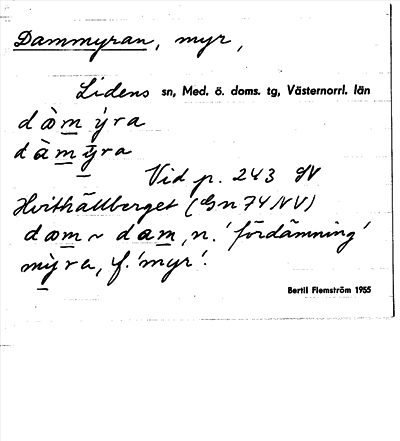 Dammyran, myr,
Lidens sn, Med. ö. doms. tg, Västernorrl. län
dàmýra
dàmȳra
Vid p. 243 NV
Hvithällberget (Gn 74 NV)
dam ~ dam, n. 'fördämning'
mỳra, f. 'myr'.
Bertil Flemström 1955